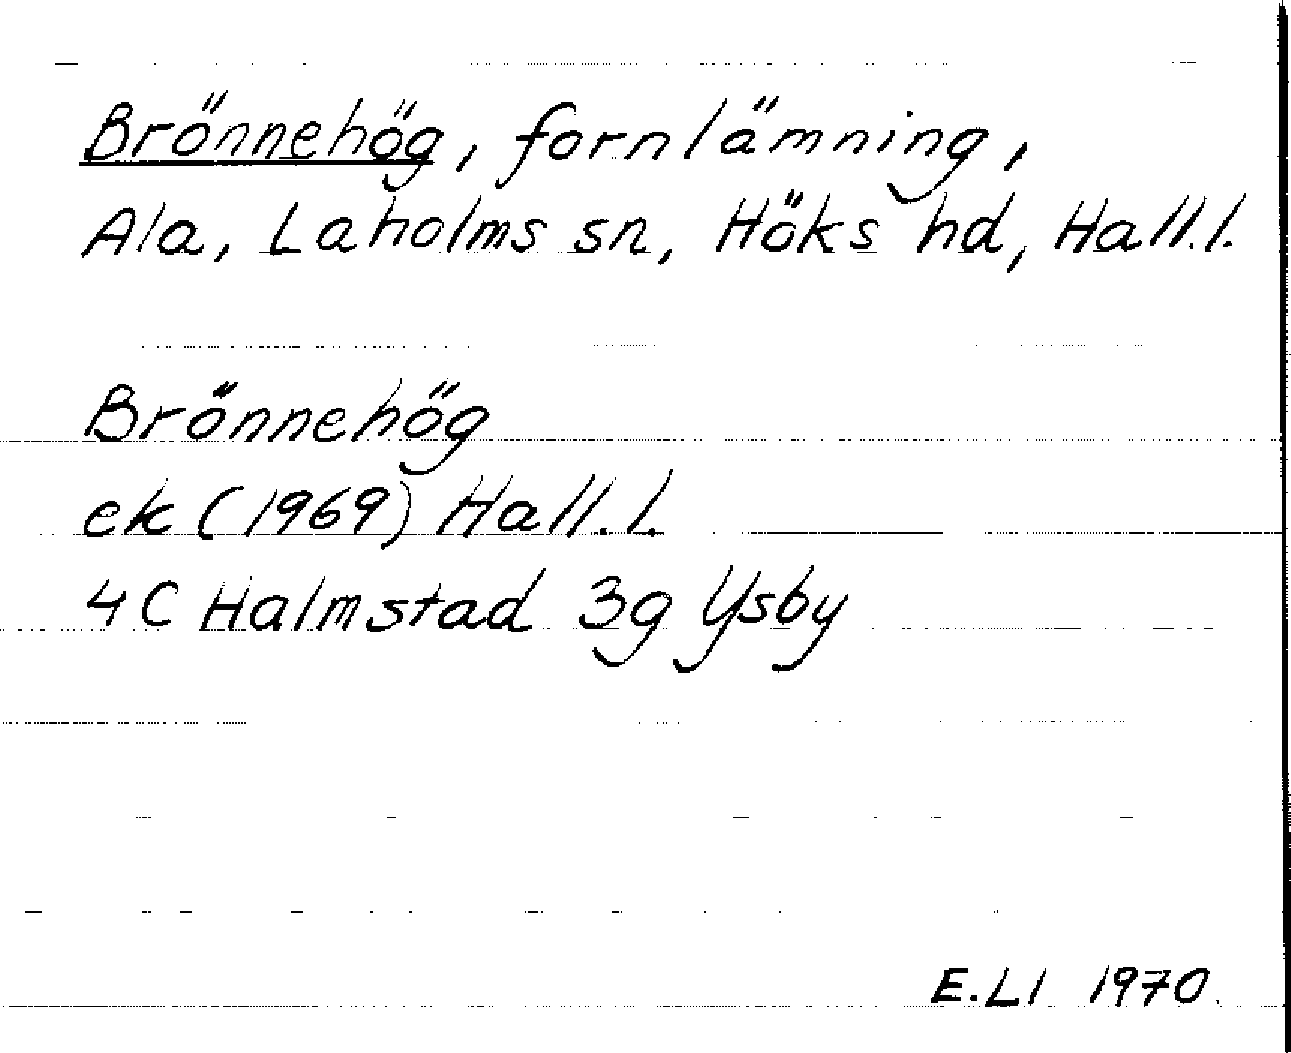 Brönnehög, fornlämning,
Ala, Laholms sn, Höks hd, Hall.l.
Brönnehög
ek (1969) Hall.l.
4C Halmstad 3g Ysby
E.Ll 1970